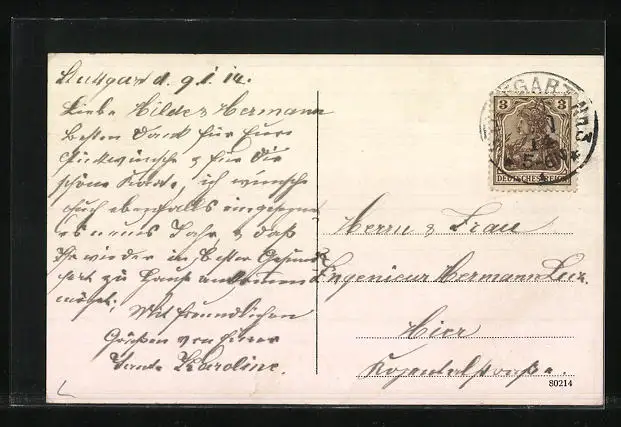 Stuttgart d. 9.1.14.
Liebe Hilde & Hermann
Besten Dank für Eure
Glückwünsche & für die
schöne Karte, ich wünsche
Euch ebenfalls ein gesegne-
tes neues Jahr & daß
Ihr wieder in bester Gesund-
heit zu Hause ankommen
möget.
Mit freundlichen
Grüßen von Eurer
Tante Karoline.
STUTTGART Nr. 3
3 3
DEUTSCHES REICH
Herrn & Frau
Ingenieur Hermann
Hier
80214